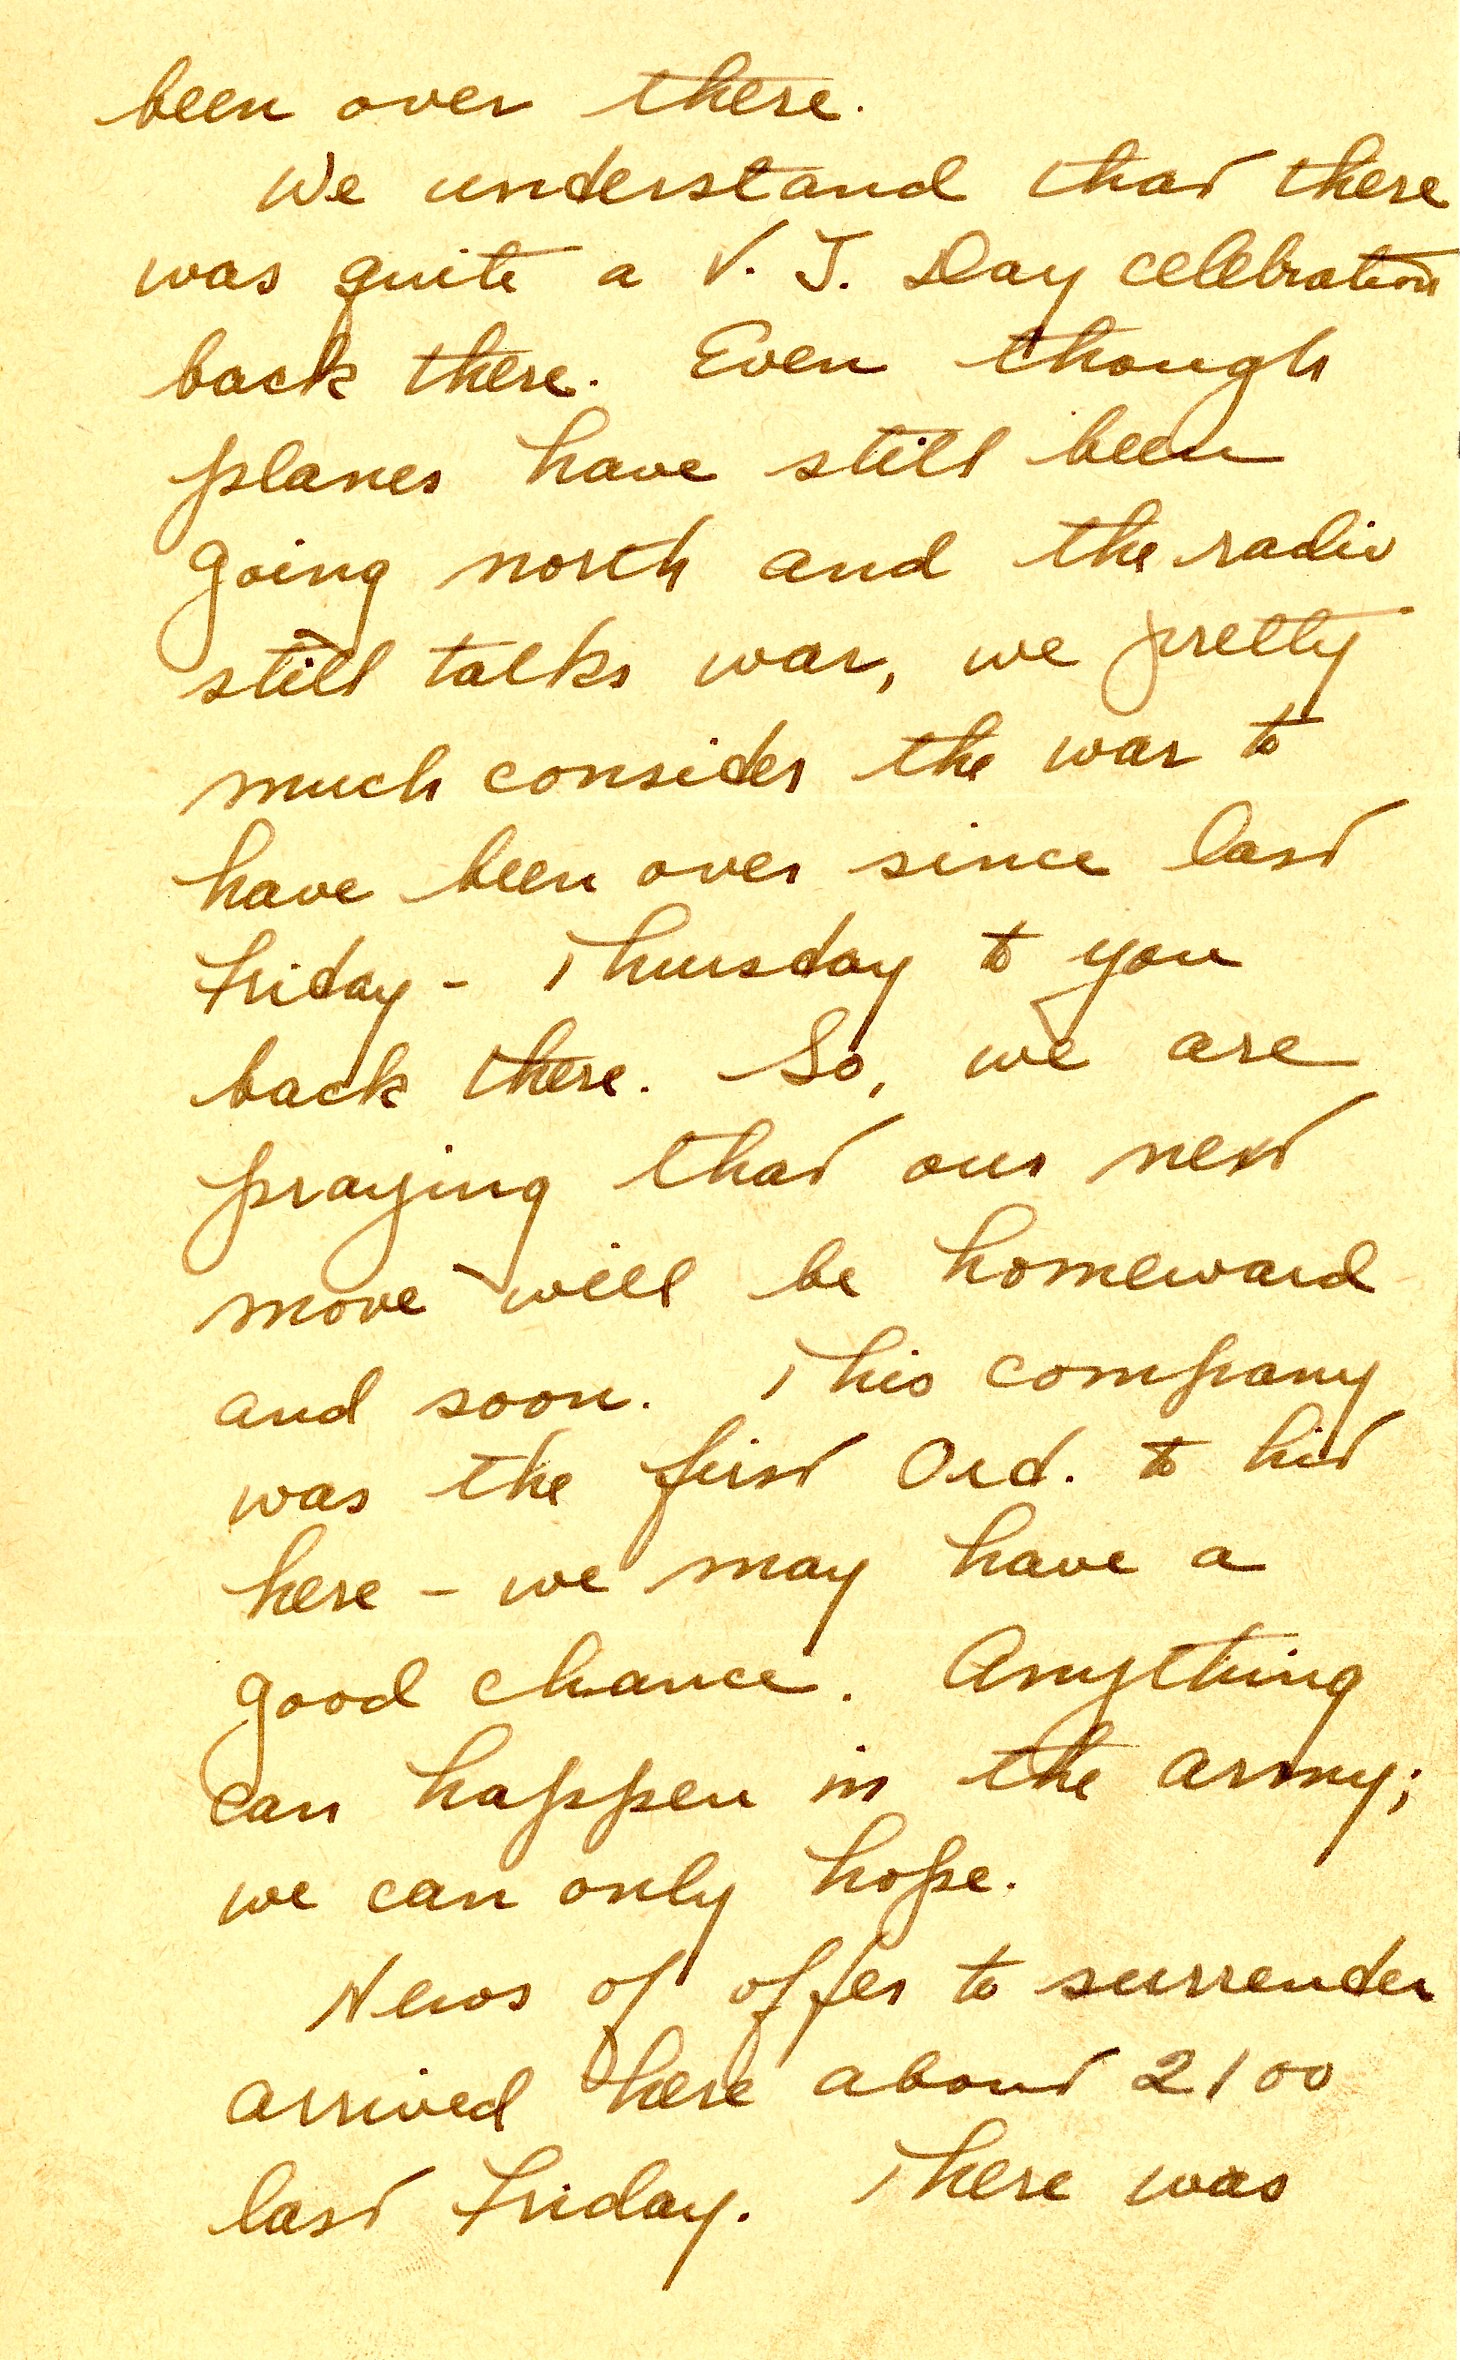 been over there.
We understand that there
was quite a V. J. Day celebration
back there. Even though
planes have still been
going north and the radio
still talks war, we pretty
much consider the war to
have been over since last
Friday - Thursday to you
back there. So, we are
praying that our next
move will be homeward
and soon. This company
was the first Ord. to hit
here - we may have a
good chance. Anything
can happen in the army;
we can only hope.
News of offer to surrender
arrived here about 2100
last Friday. There was